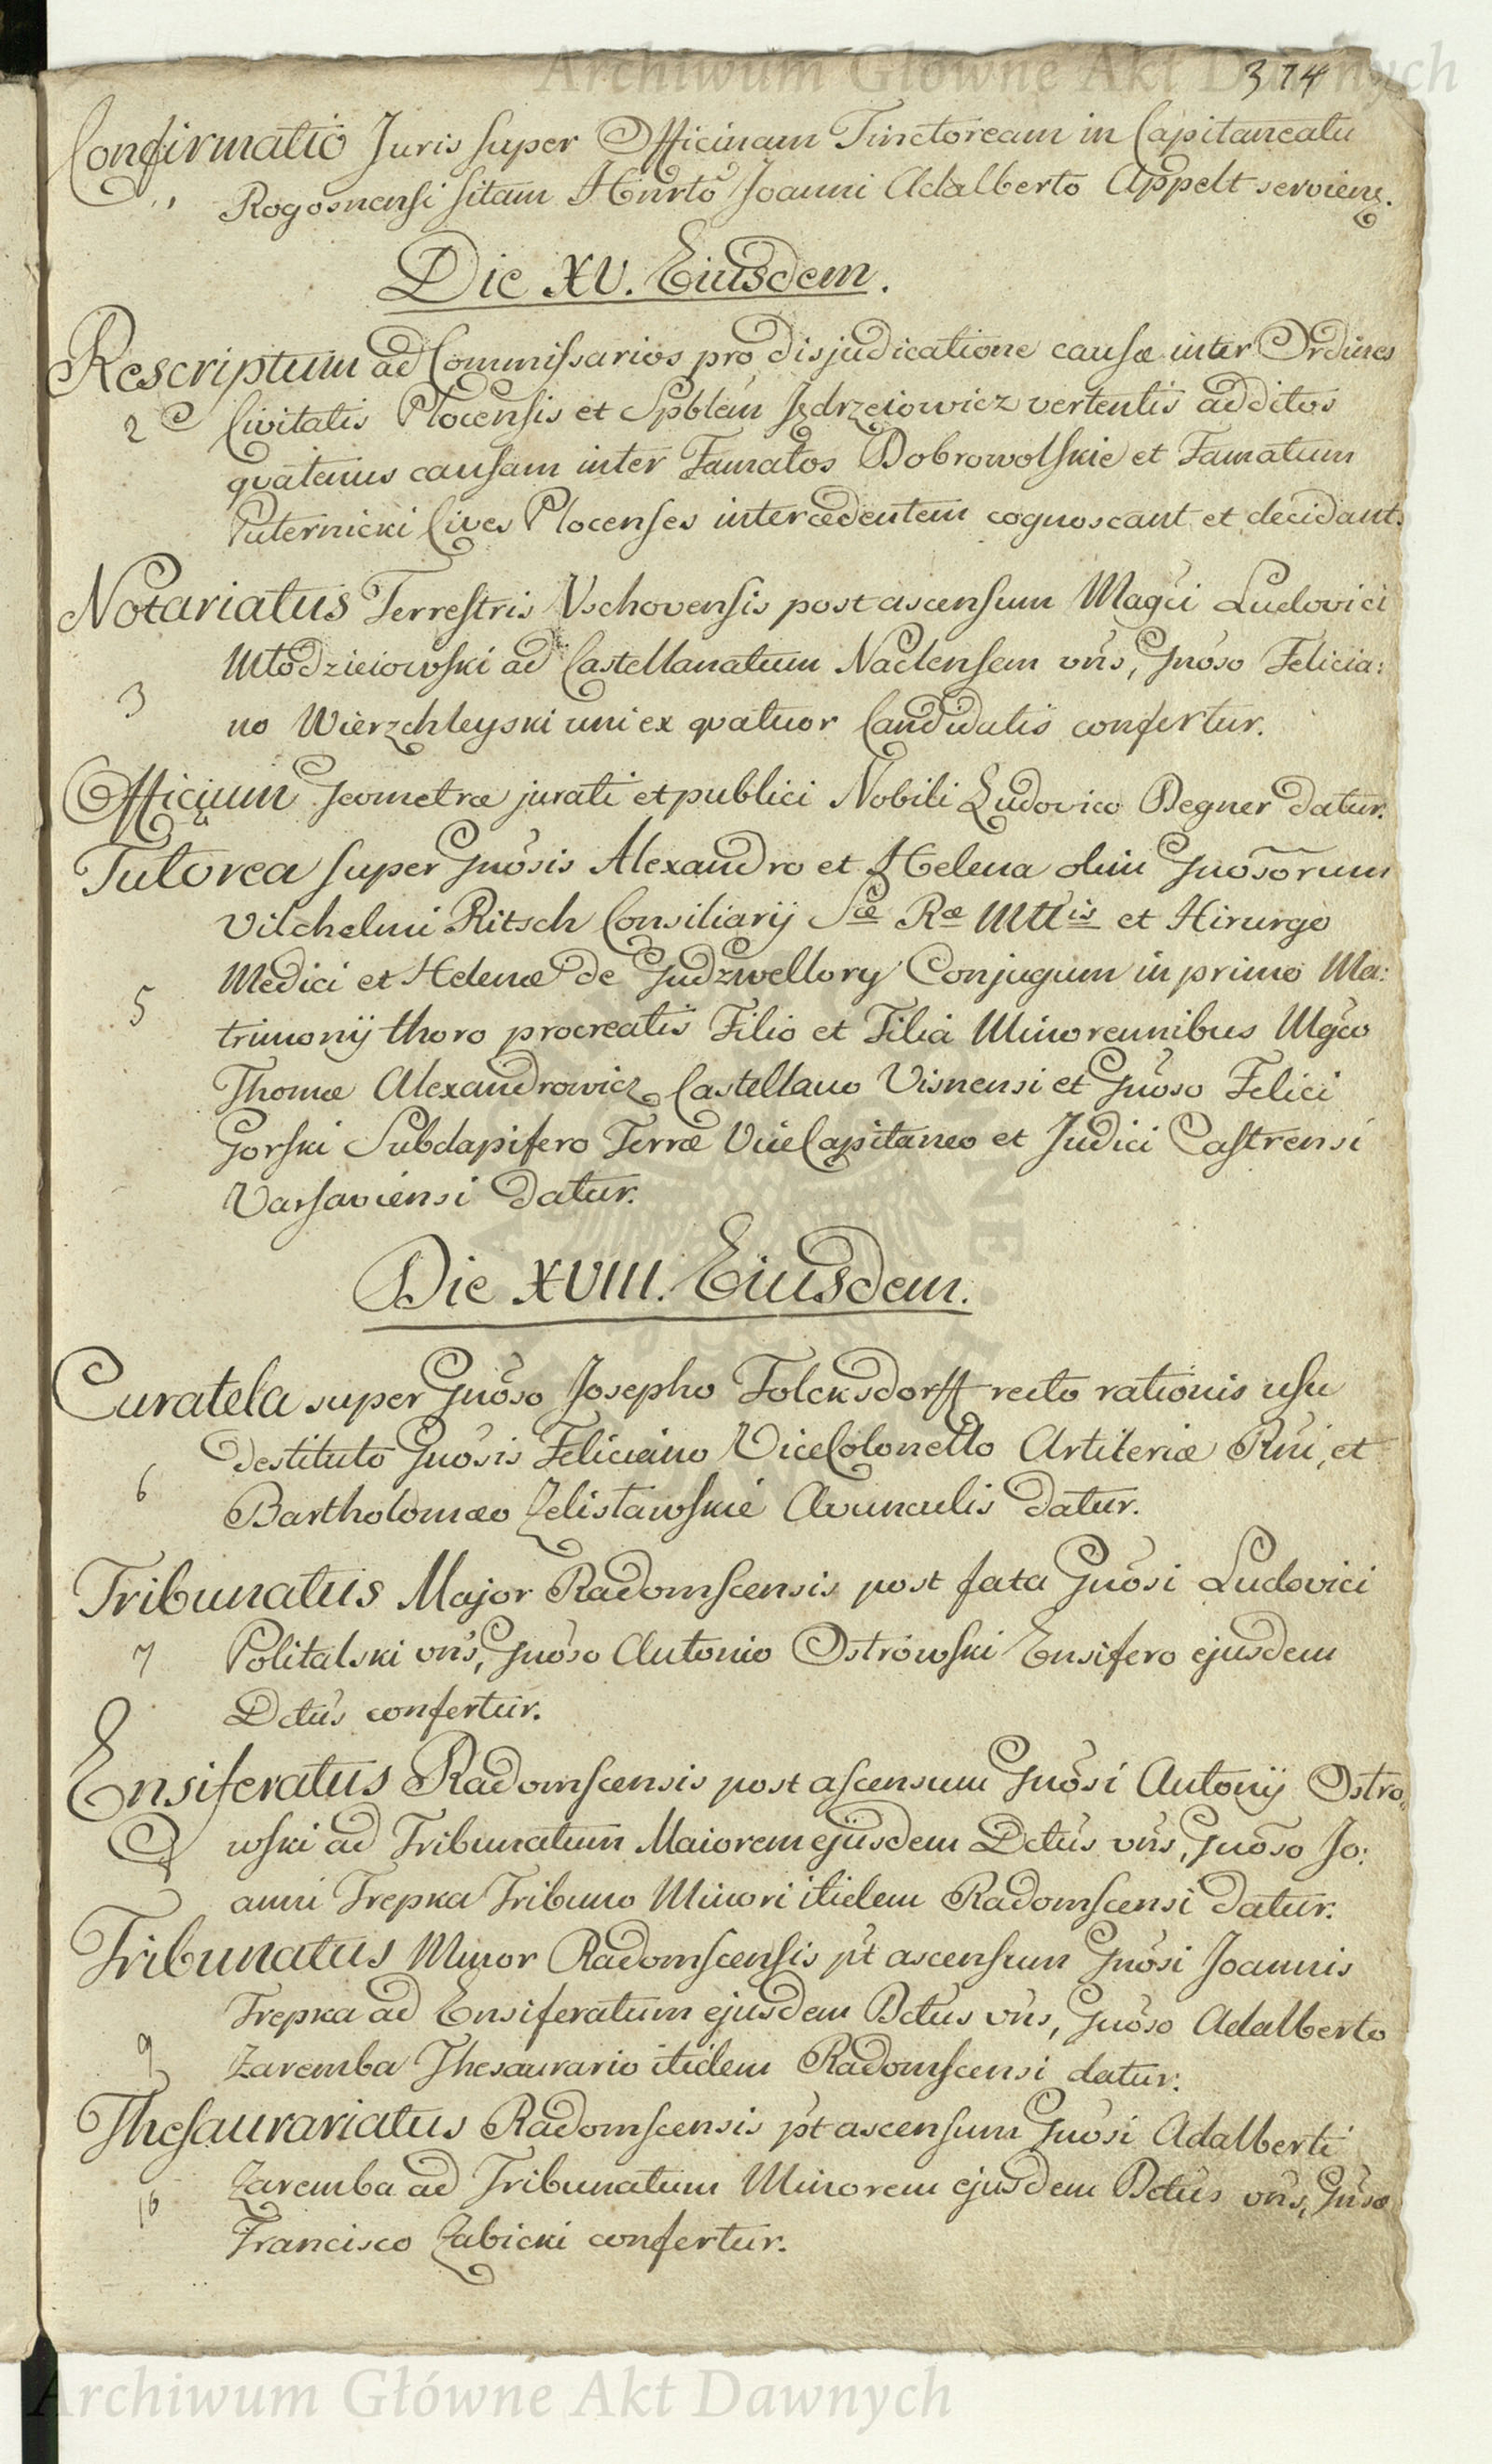 Archiwum Główne Akt Dawnych
374
Confirmatio Juris super Officinam Tinctoream in Capitaneatu
Rogosnensi sitam Hnrto Joanni Adalberto Appelt serviens.
Die XV. Eiusdem.
Rescriptum ad Commissarios pro disjudicatione causæ inter Ordines
2 Civitatis Plocensis et Spblem Jędrzeiowicz vertentis additos
quatenus causam inter Famatos Dobrowolskie et Famatum
Puternicki Cives Plocenses intercedentem cognoscant et decidant.
Notariatus Terrestris Vschovensis post ascensum Magci Ludovici
Młodzieiowski ad Castellanatum Naclensem vns, Gnoso Felicia:
3 no Wierzchleyski uni ex quatuor Candidatis confertur.
Officium Geometræ jurati et publici Nobili Ludovico Degner datur.
4
Tutorea super Gnosis Alexandro et Helena olim Gnosorum
Vilchelmi Ritsch Consiliarij Sæ Ræ Mttis et Hirurgo
Medici et Helenæ de Gudzwellory Conjugum in primo Ma:
5 trimonij thoro procreatis Filio et Filia Minorennibus Mgco
Thomæ Alexandrowicz Castellano Visnensi et Gnoso Felici
Gorski Subdapifero Terræ ViceCapitaneo et Judici Castrensi
Varsaviensi datur.
Die XVIII. Eiusdem.
Curatela super Gnoso Josepho Folcksdorff recto rationis usu
destituto Gnosis Feliciano ViceColonello Artileriæ Rni, et
6 Bartholomæo Zelisławskie Avunculis datur.
Tribunatus Major Radomscensis post fata Gnosi Ludovici
7 Politalski vns, Gnoso Antonio Ostrowski Ensifero ejusdem
Dctus confertur.
Ensiferatus Radomscensis post ascensum Gnosi Antonij Ostro„
8 wski ad Tribunatum Maiorem ejusdem Dctus vns, Gnoso Jo:
anni Trepka Tribuno Minori itidem Radomscensi datur.
Tribunatus Minor Radomscensis pt ascensum Gnosi Joannis
Trepka ad Ensiferatum ejusdem Dctus vns, Gnoso Adalberto
9 Zaremba Thesaurario itidem Radomscensi datur.
Thesaurariatus Radomscensis pt ascensum Gnosi Adalberti
10 Zaremba ad Tribunatum Minorem ejusdem Dctus vns, Gnso
Francisco Zabicki confertur.
Archiwum Główne Akt Dawnych